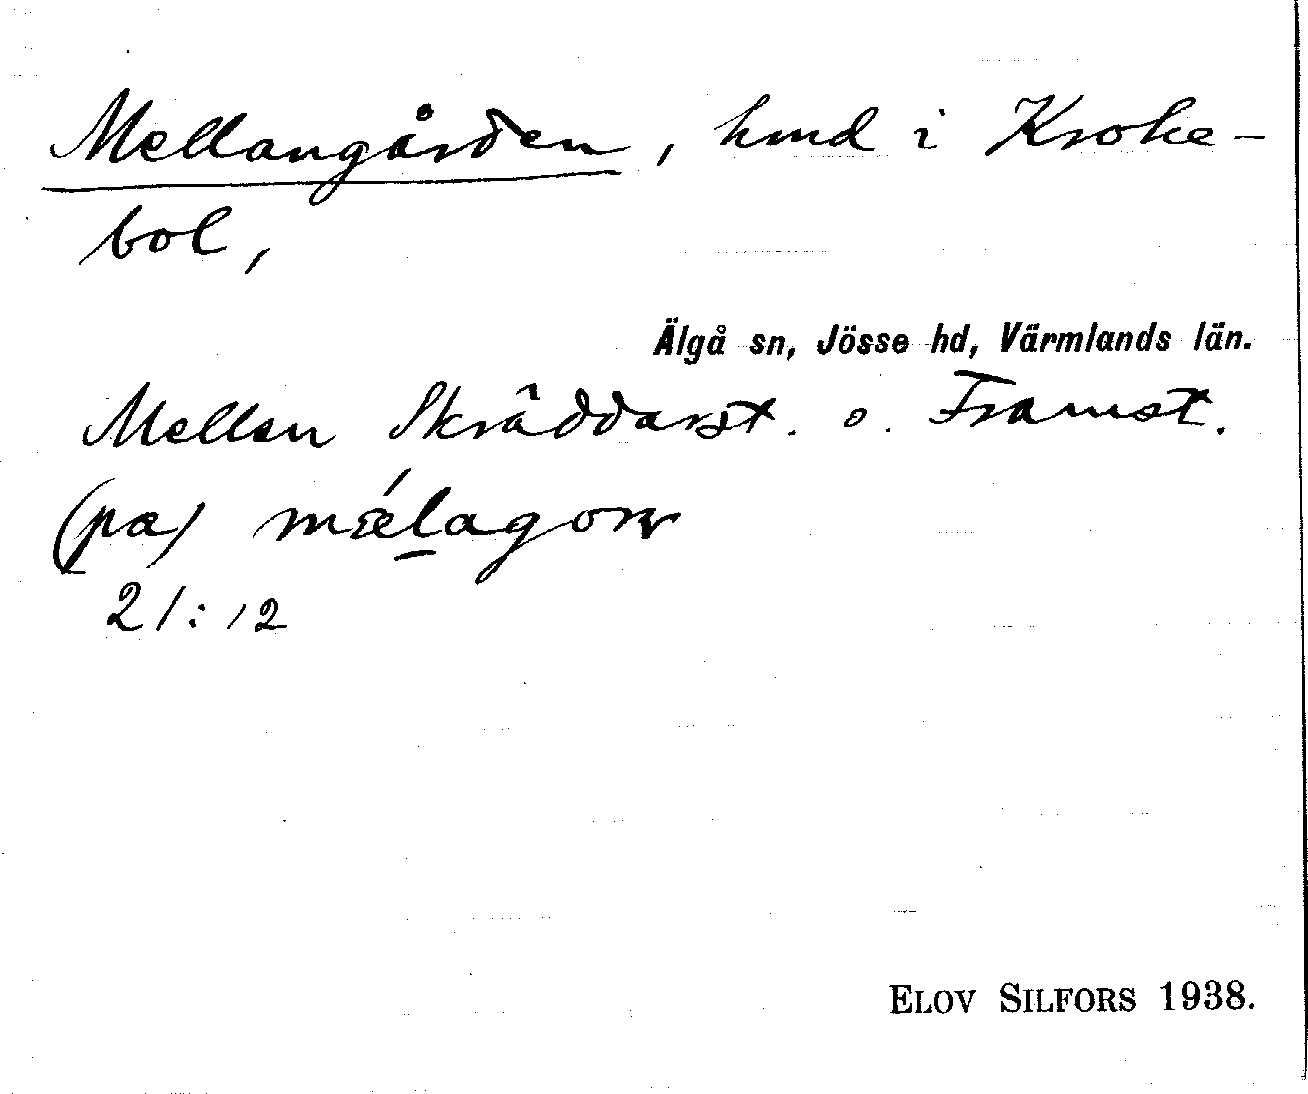 Mellangården, hmd i Kroke-
bol,
Älgå sn, Jösse hd, Värmlands län.
Mellan Skräddarst. o. Framst.
(pa) mǽlagoɳ
21:12
ELOV SILFORS 1938.